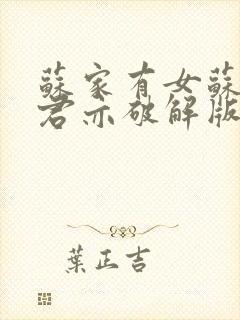 蘇家有女蘇
君亦破解版
葉正吉